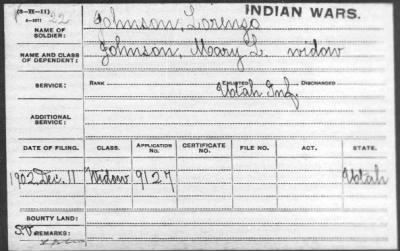 (3-H-11) 22 INDIAN WARS.
NAME OF SOLDIER: Johnson, Lorenzo
NAME AND CLASS OF DEPENDENT: Johnson, Mary L. widow
SERVICE: RANK ENLISTED DISCHARGED
Utah Inf.
ADDITIONAL SERVICE:
DATE OF FILING. CLASS. APPLICATION No. CERTIFICATE No. FILE NO. ACT. STATE.
1902 Dec. 11 Widow 9127 Utah
BOUNTY LAND:
REMARKS: